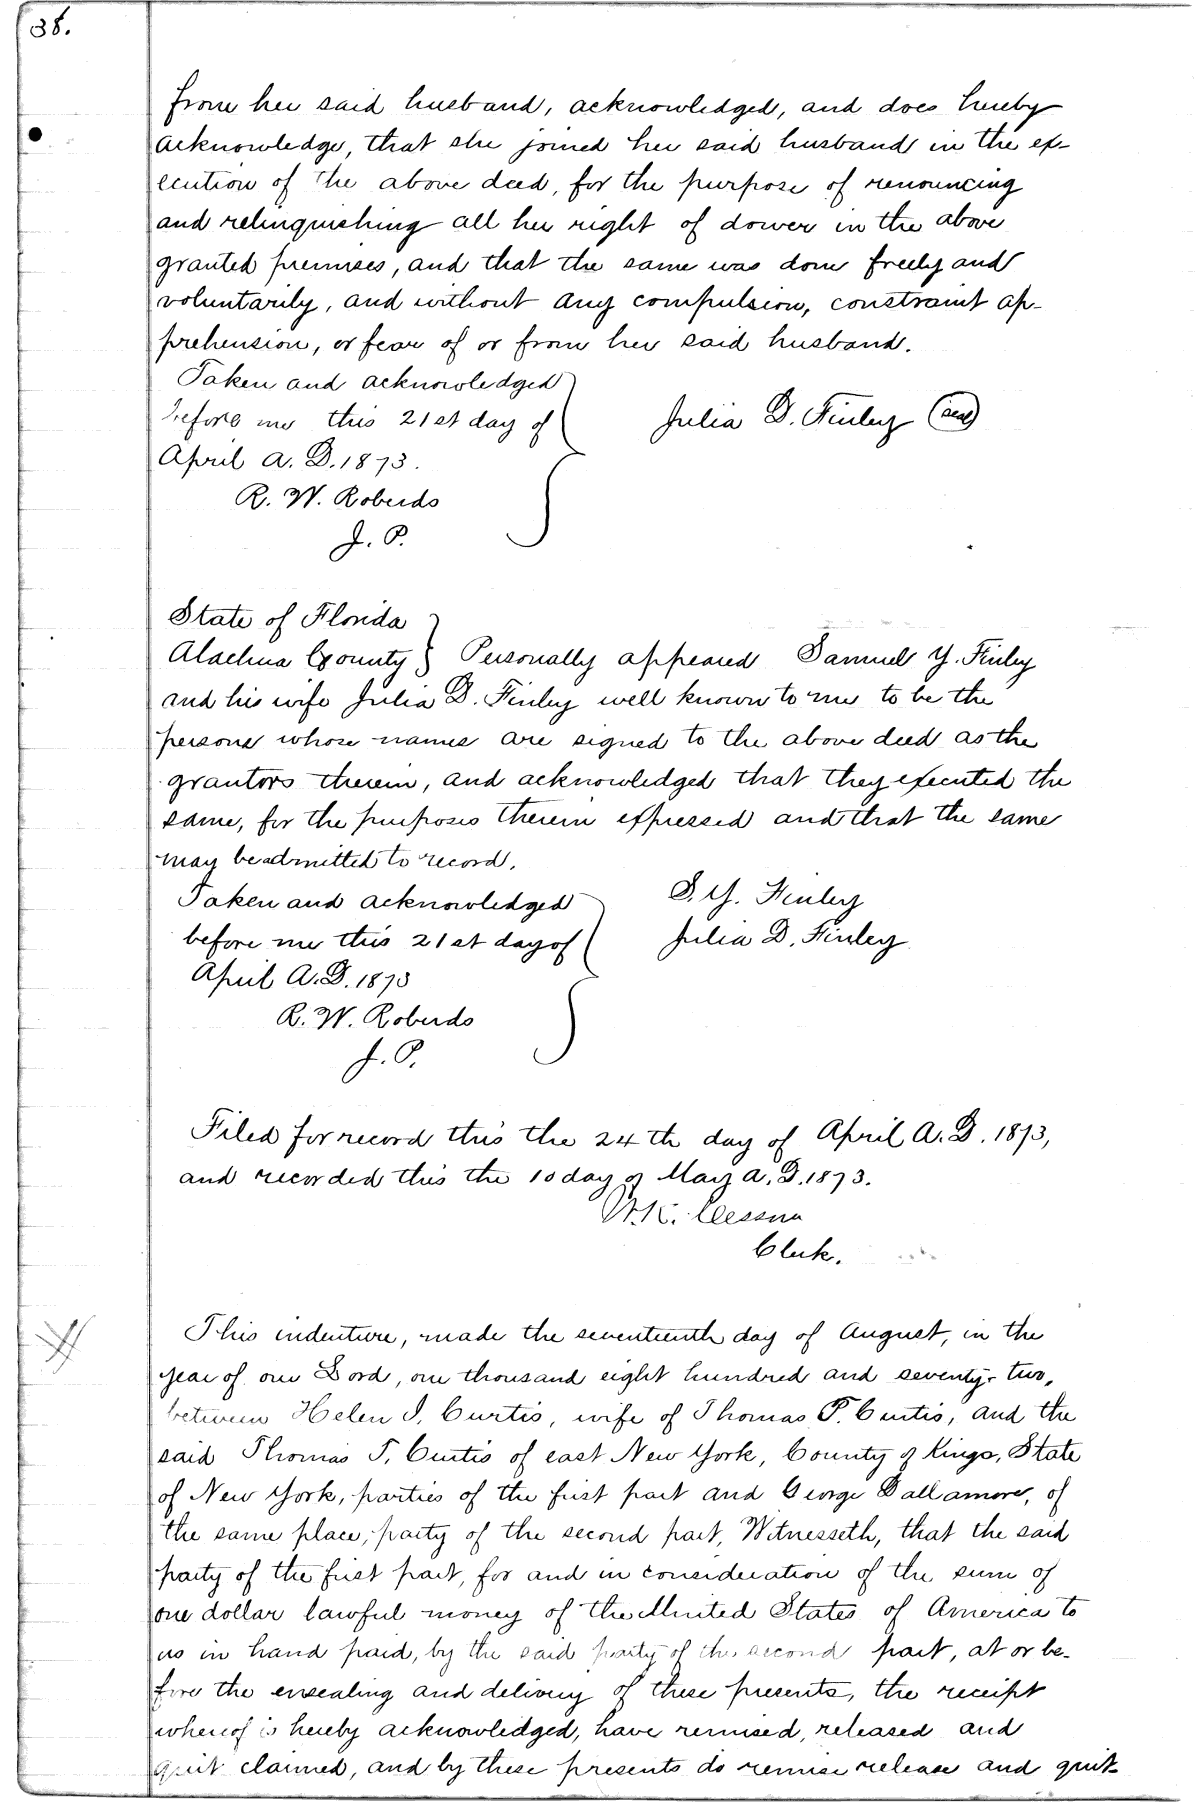 38.
from her said husband, acknowledged, and does hereby
acknowledge, that she joined her said husband in the ex-
ecution of the above deed, for the purpose of renouncing
and relinquishing all her right of dower in the above
granted premises, and that the same was done freely and
voluntarily, and without any compulsion, constraint ap-
prehension, or fear of or from her said husband.
Taken and acknowledged
before me this 21st day of
April A. D. 1873.
R. W. Roberds
J. P.
Julia D. Finley (seal)
State of Florida
Alachua County } Personally appeared Samuel Y. Finley
and his wife Julia D. Finley well known to me to be the
persons whose names are signed to the above deed as the
grantors therein, and acknowledged that they executed the
same, for the purposes therein expressed and that the same
may be admitted to record.
Taken and acknowledged
before me this 21st day of
April A. D. 1873
R. W. Roberds
J. P.
S. Y. Finley
Julia D. Finley
Filed for record this the 24th day of April A. D. 1873,
and recorded this the 10 day of May A. D. 1873.
W. K. Cessna
Clerk.
This indenture, made the seventeenth day of August, in the
year of our Lord, one thousand eight hundred and seventy-two,
between Helen I. Curtis, wife of Thomas T. Curtis, and the
said Thomas T. Curtis of east New York, County of Kings, State
of New York, parties of the first part and George Dallamore, of
the same place, party of the second part, Witnesseth, that the said
party of the first part, for and in consideration of the sum of
one dollar lawful money of the United States of America to
us in hand paid, by the said party of the second part, at or be-
fore the ensealing and delivery of these presents, the receipt
whereof is hereby acknowledged, have remised, released and
quit claimed, and by these presents do remise release and quit-